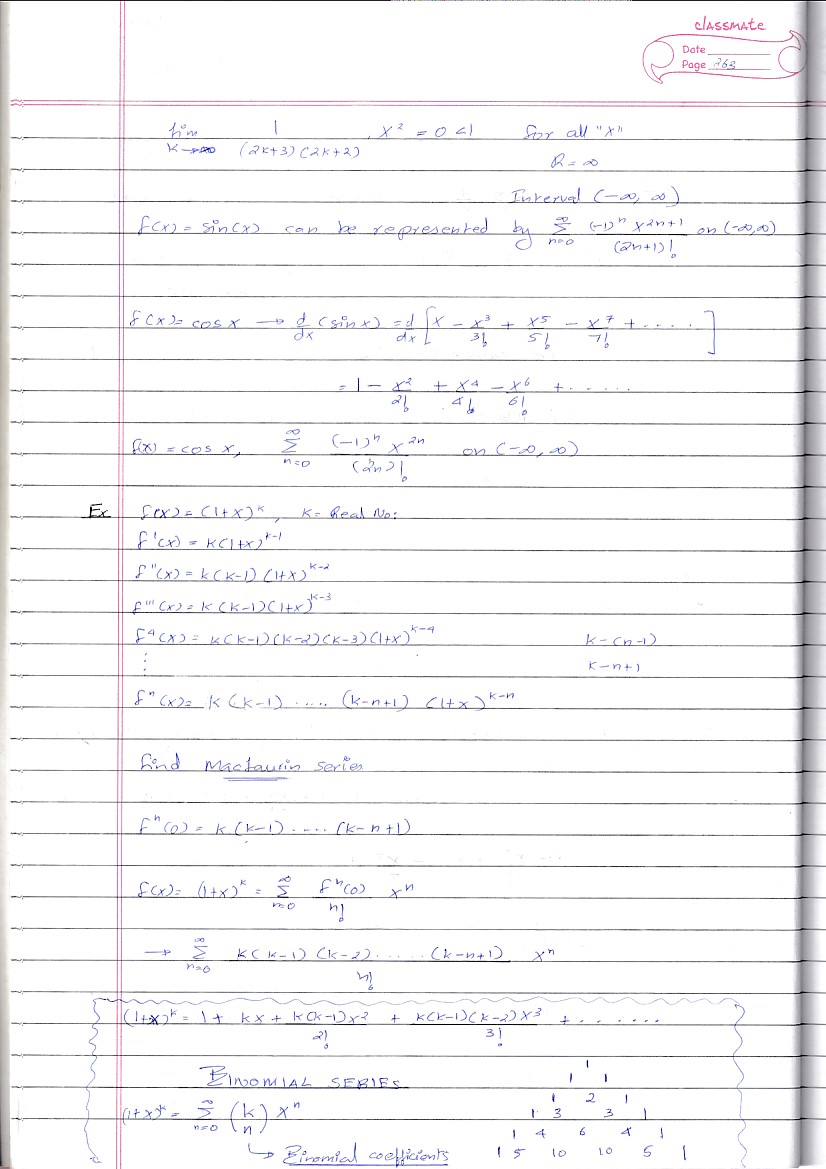 classmate
Date
Page 263
lim k→∞ 1/((2k+3)(2k+2)) . x² = 0 <1 for all "x"
R = ∞
Interval (-∞, ∞)
f(x) = sin(x) can be represented by ∞ Σ n=0 (-1)ⁿ x^(2n+1)/(2n+1)! on (-∞,∞)
f(x) = cos x → d/dx (sin x) = d/dx [x - x³/3! + x⁵/5! - x⁷/7! + ..... ]
= 1 - x²/2! + x⁴/4! - x⁶/6! + ......
f(x) = cos x, ∞ Σ n=0 (-1)ⁿ x^(2n)/(2n)! on (-∞, ∞)
Ex f(x) = (1+x)^k, k = Real No:
f'(x) = k(1+x)^(k-1)
f''(x) = k(k-1)(1+x)^(k-2)
f'''(x) = k(k-1)(1+x)^(k-3)
f⁴(x) = k(k-1)(k-2)(k-3)(1+x)^(k-4) k-(n-1)
⋮ k-n+1
fⁿ(x) = k(k-1) ...... (k-n+1) (1+x)^(k-n)
find Maclaurin series
fⁿ(0) = k(k-1) ..... (k-n+1)
f(x) = (1+x)^k = ∞ Σ n=0 fⁿ(0)/n! xⁿ
→ ∞ Σ n=0 k(k-1)(k-2) ...... (k-n+1)/n! xⁿ
(1+x)^k = 1 + kx + k(k-1)x²/2! + k(k-1)(k-2)x³/3! + .......
BINOMIAL SERIES
(1+x)^k = ∞ Σ n=0 (k n) xⁿ
↳ Binomial coefficients
1
1 1
1 2 1
1 3 3 1
1 4 6 4 1
1 5 10 10 5 1